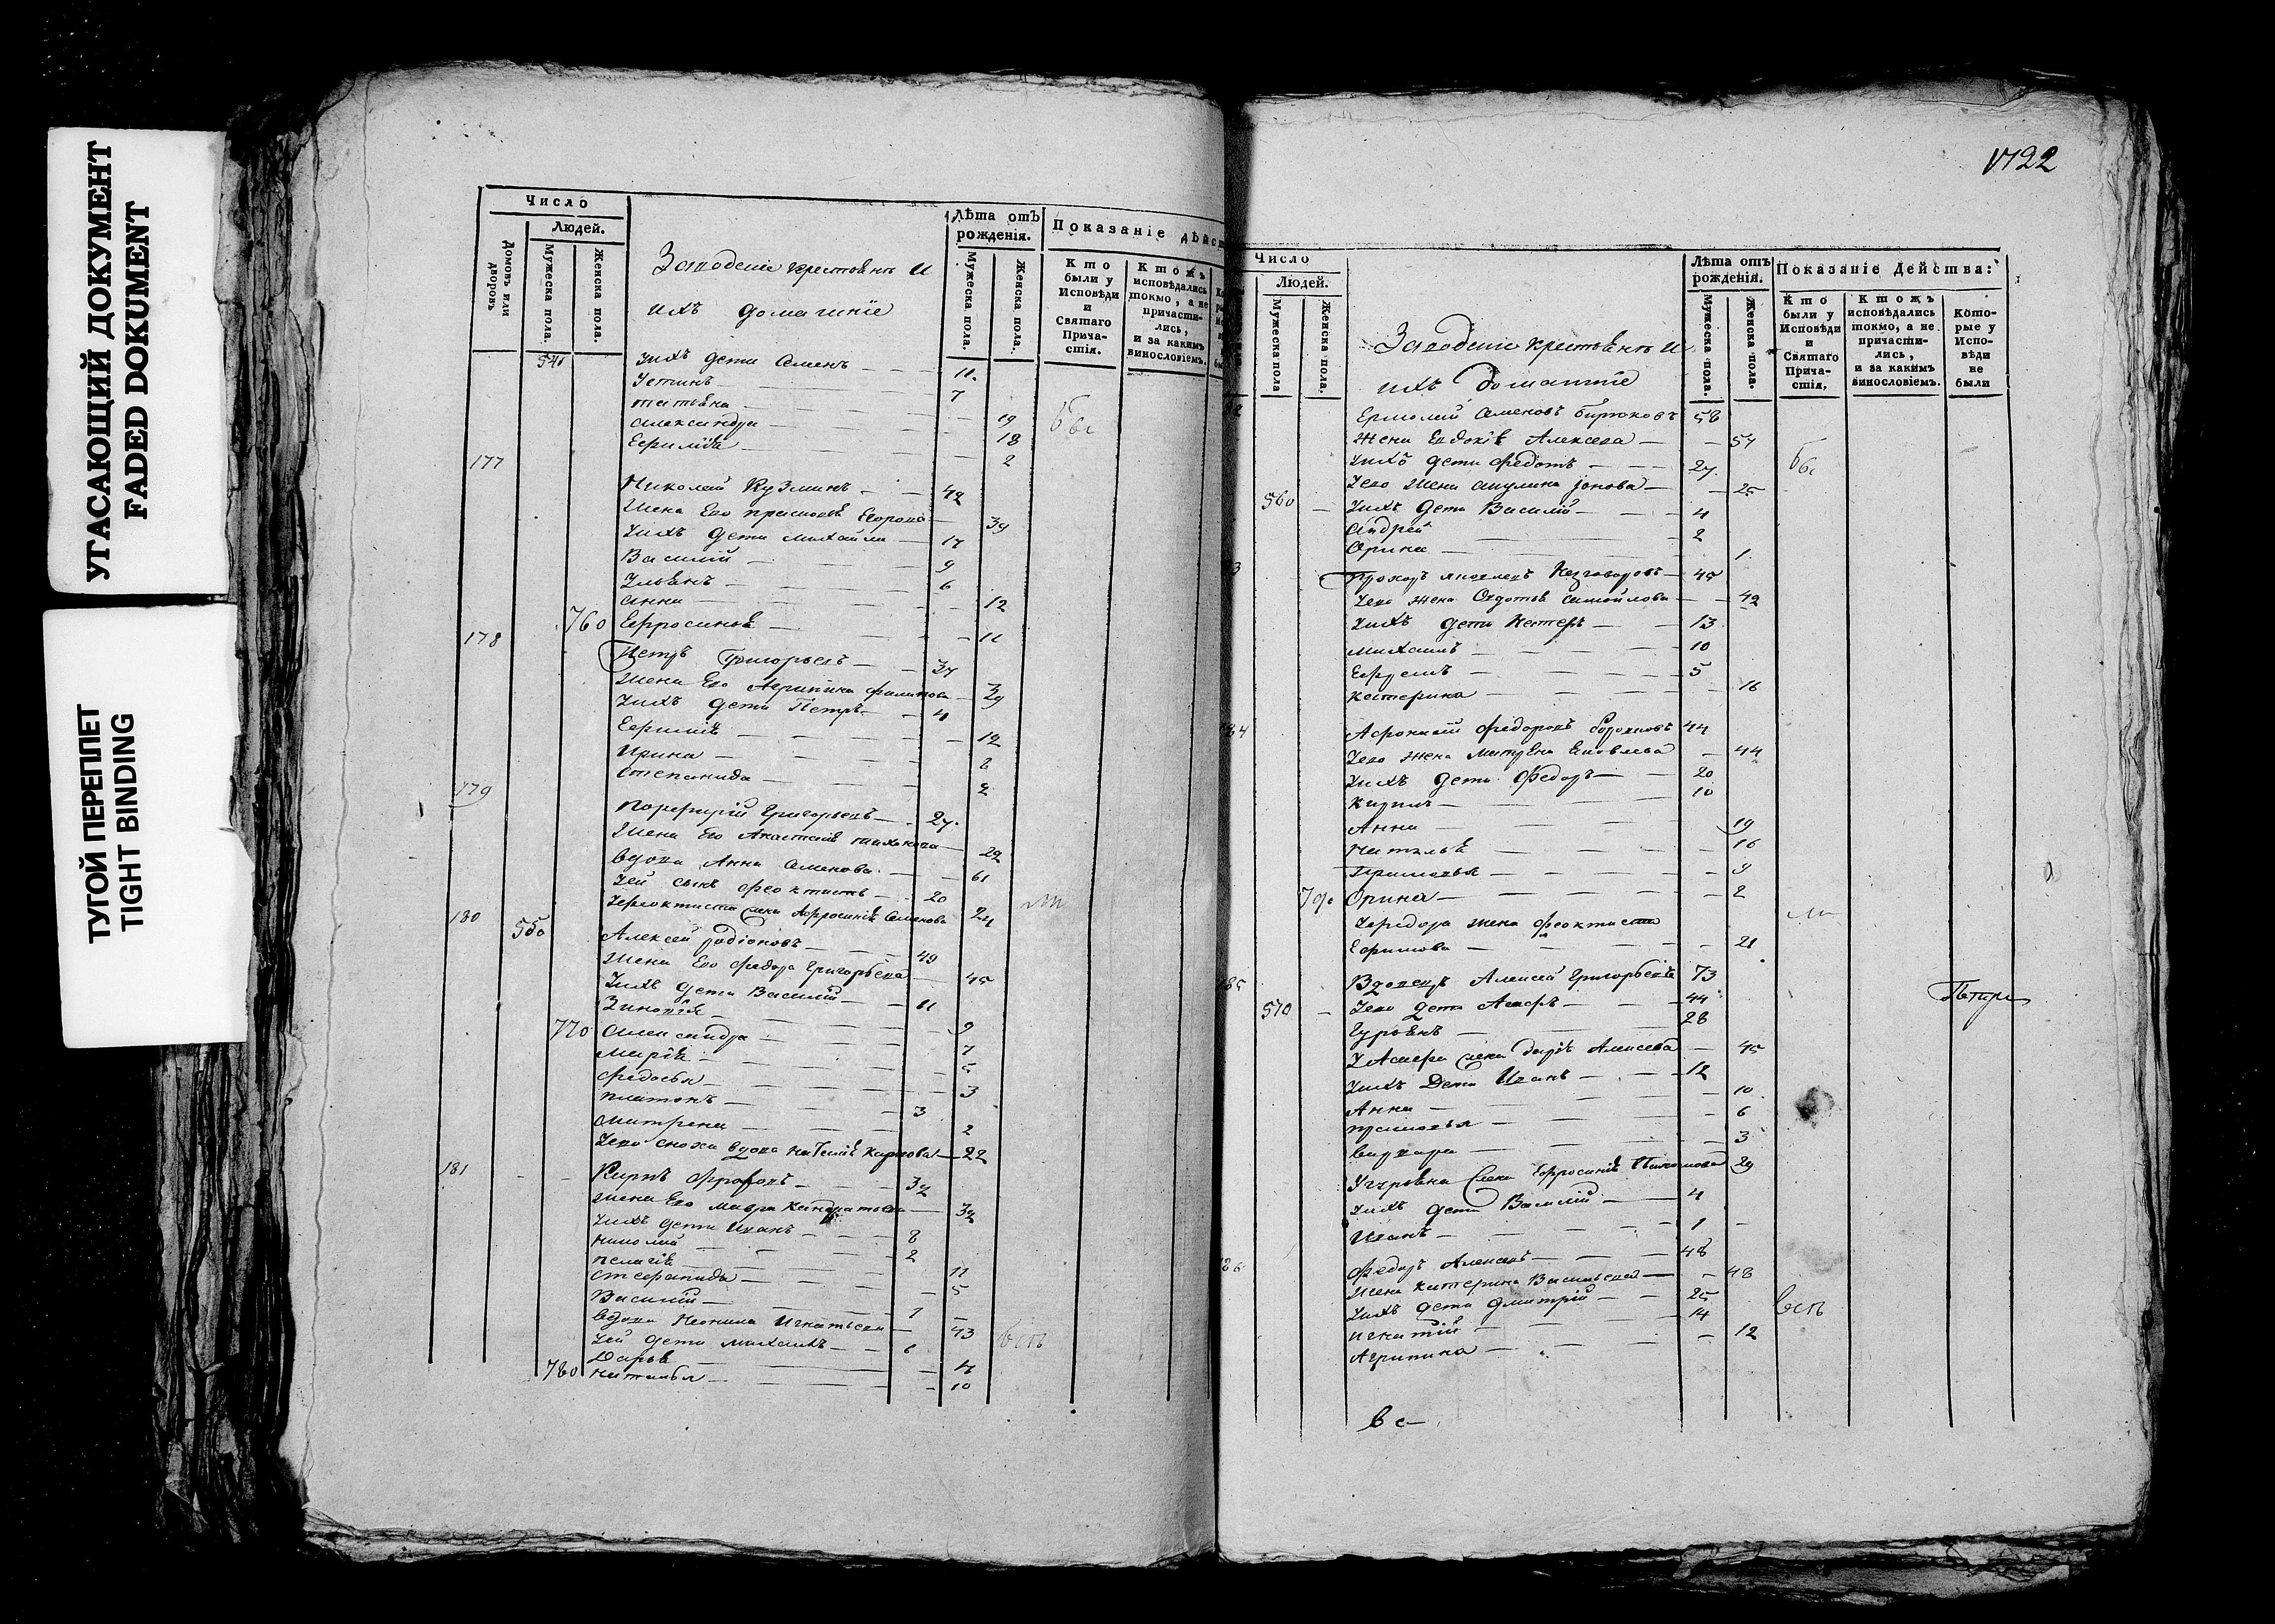 УГАСАЮЩИЙ ДОКУМЕНТ
FADED DOKUMENT
ТУГОЙ ПЕРЕПЛЕТ
TIGHT BINDING
Число
Людей.
Домовъ или дворовъ
Мужеска пола.
Женска пола.
Заводскіе крестьянъ и
ихъ домашніе
Лѣта отъ рожденія.
Мужеска пола.
Женска пола.
Показаніе дѣйст
Кто были у Исповѣди и Святаго Прича-стія.
Ктожъ исповѣдались токмо, а не причасти-лись, и за какимъ винословіемъ.
541 Ихъ дети Семенъ 11.
Устинъ 7
татьяна 19
александра 18
Ефимія 2
177
Николай Кузминъ 42
Жена Его прасковья Егорова 39
Ихъ дети михаила 17
Василій 9
Ульянъ 6
анна 12
760 Ефросинья 11
178
Петръ Григорьевъ 34
Жена Его Агрипина филипова 39
Ихъ дети Петръ 4
Ефимія 12
Ирина 8
степанида 2
179
порфирій Григорьевъ 27.
Жена Его Анастасія тихонова 22
вдова Анна Семенова 61
Ией сынъ феоктистъ 20
Уфеоктиста жена Афросинья Семенова 24
180
550 Алексей родіоновъ 49
Жена Его федора Григорьева 45
Ихъ дети Василій 11
Зиновія 9
770 александра 7
марія 5
федосья 3
платонъ 3
матрена 2
Иево сноха вдова наталія карпова 22
181
Карпъ фроловъ 32
жена Его мавра Кандратьева 32
Ихъ дети Иванъ 8
николай 2
пелагія 11
стефанида 5
Василій 1
вдова Неонила Игнатьева 43
Ией дети михаилъ 6
Дарья 14
780 наталья 10
1722
Число
Людей.
Мужеска пола
Женска пола.
Заводскіе крестьянъ и
ихъ домашніе
Лѣта отъ рожденія.
Мужеска пола.
Женска пола.
Показаніе Действа:
Кто были у Исповѣди и Святаго Прича-стія.
Ктожъ исповѣдались токмо, а не причасти-лись, и за какимъ винословіемъ.
Кото-рые у Испо-вѣди не были
Ермолай Семеновъ бирюковъ 58
Жена Евдокія Алексеева 54
Ихъ дети федотъ 27.
Иево жена акулина іонова 25
560 Ихъ дети Василій 4
Андрей 2
Орина 1.
Прохоръ яковлевъ 45
Иево жена Овдотья самойлова 42
Ихъ дети Нестеръ 13
михаилъ 10
Ефремъ 5
катерина 16
184
Афонасій федоровъ 44
Иево жена матрена Яковлева 44
Ихъ дети федоръ 20
карпъ 10
Анна 19
наталья 16
прасковья 9
790 Орина 2
Уфедора жена феоктиста
Ефимова 21
185
Вдовецъ Алексей Григорьевъ 73
570 Иево дети Асафъ 44
Гурьянъ 28
УАсафа жена дарья Алексеева 45
Ихъ Дети Иванъ 12
Анна 10
прасковья 6
варвара 3
Угурьяна жена Ефросинія 29
Ихъ дети Василій 4
Иванъ 1
186
федоръ Алексеевъ 48
Жена катерина Васильева 48
Ихъ дети дмитрій 25
игнатій 14
Агрипина 12
все